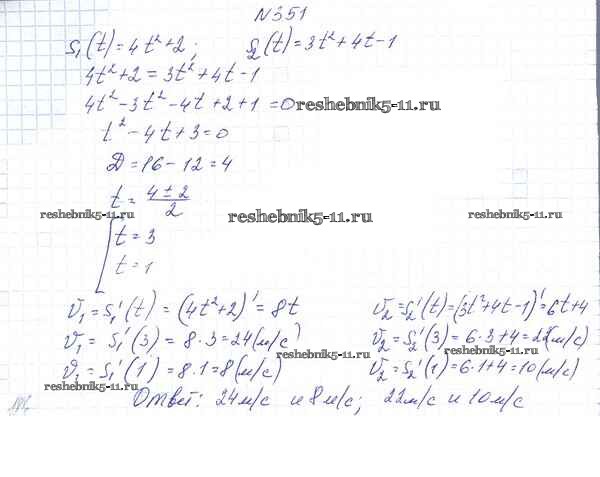 №351
S₁(t)=4t²+2; S₂(t)=3t²+4t-1
4t²+2=3t²+4t-1
4t²-3t²-4t+2+1=0 reshebnik5-11.ru
t²-4t+3=0
D=16-12=4
t=(4±2)/2
reshebnik5-11.ru reshebnik5-11.ru reshebnik5-11.ru
[t=3
t=1
V₁=S₁'(t)=(4t²+2)'=8t V₂=S₂'(t)=(3t²+4t-1)'=6t+4
V₁=S₁'(3)=8·3=24(м/с) V₂=S₂'(3)=6·3+4=22(м/с)
reshebnik5-11.ru
V₁=S₁'(1)=8·1=8(м/с) V₂=S₂'(1)=6·1+4=10(м/с)
reshebnik5-11.ru
Ответ: 24м/с и 8м/с; 22м/с и 10м/с